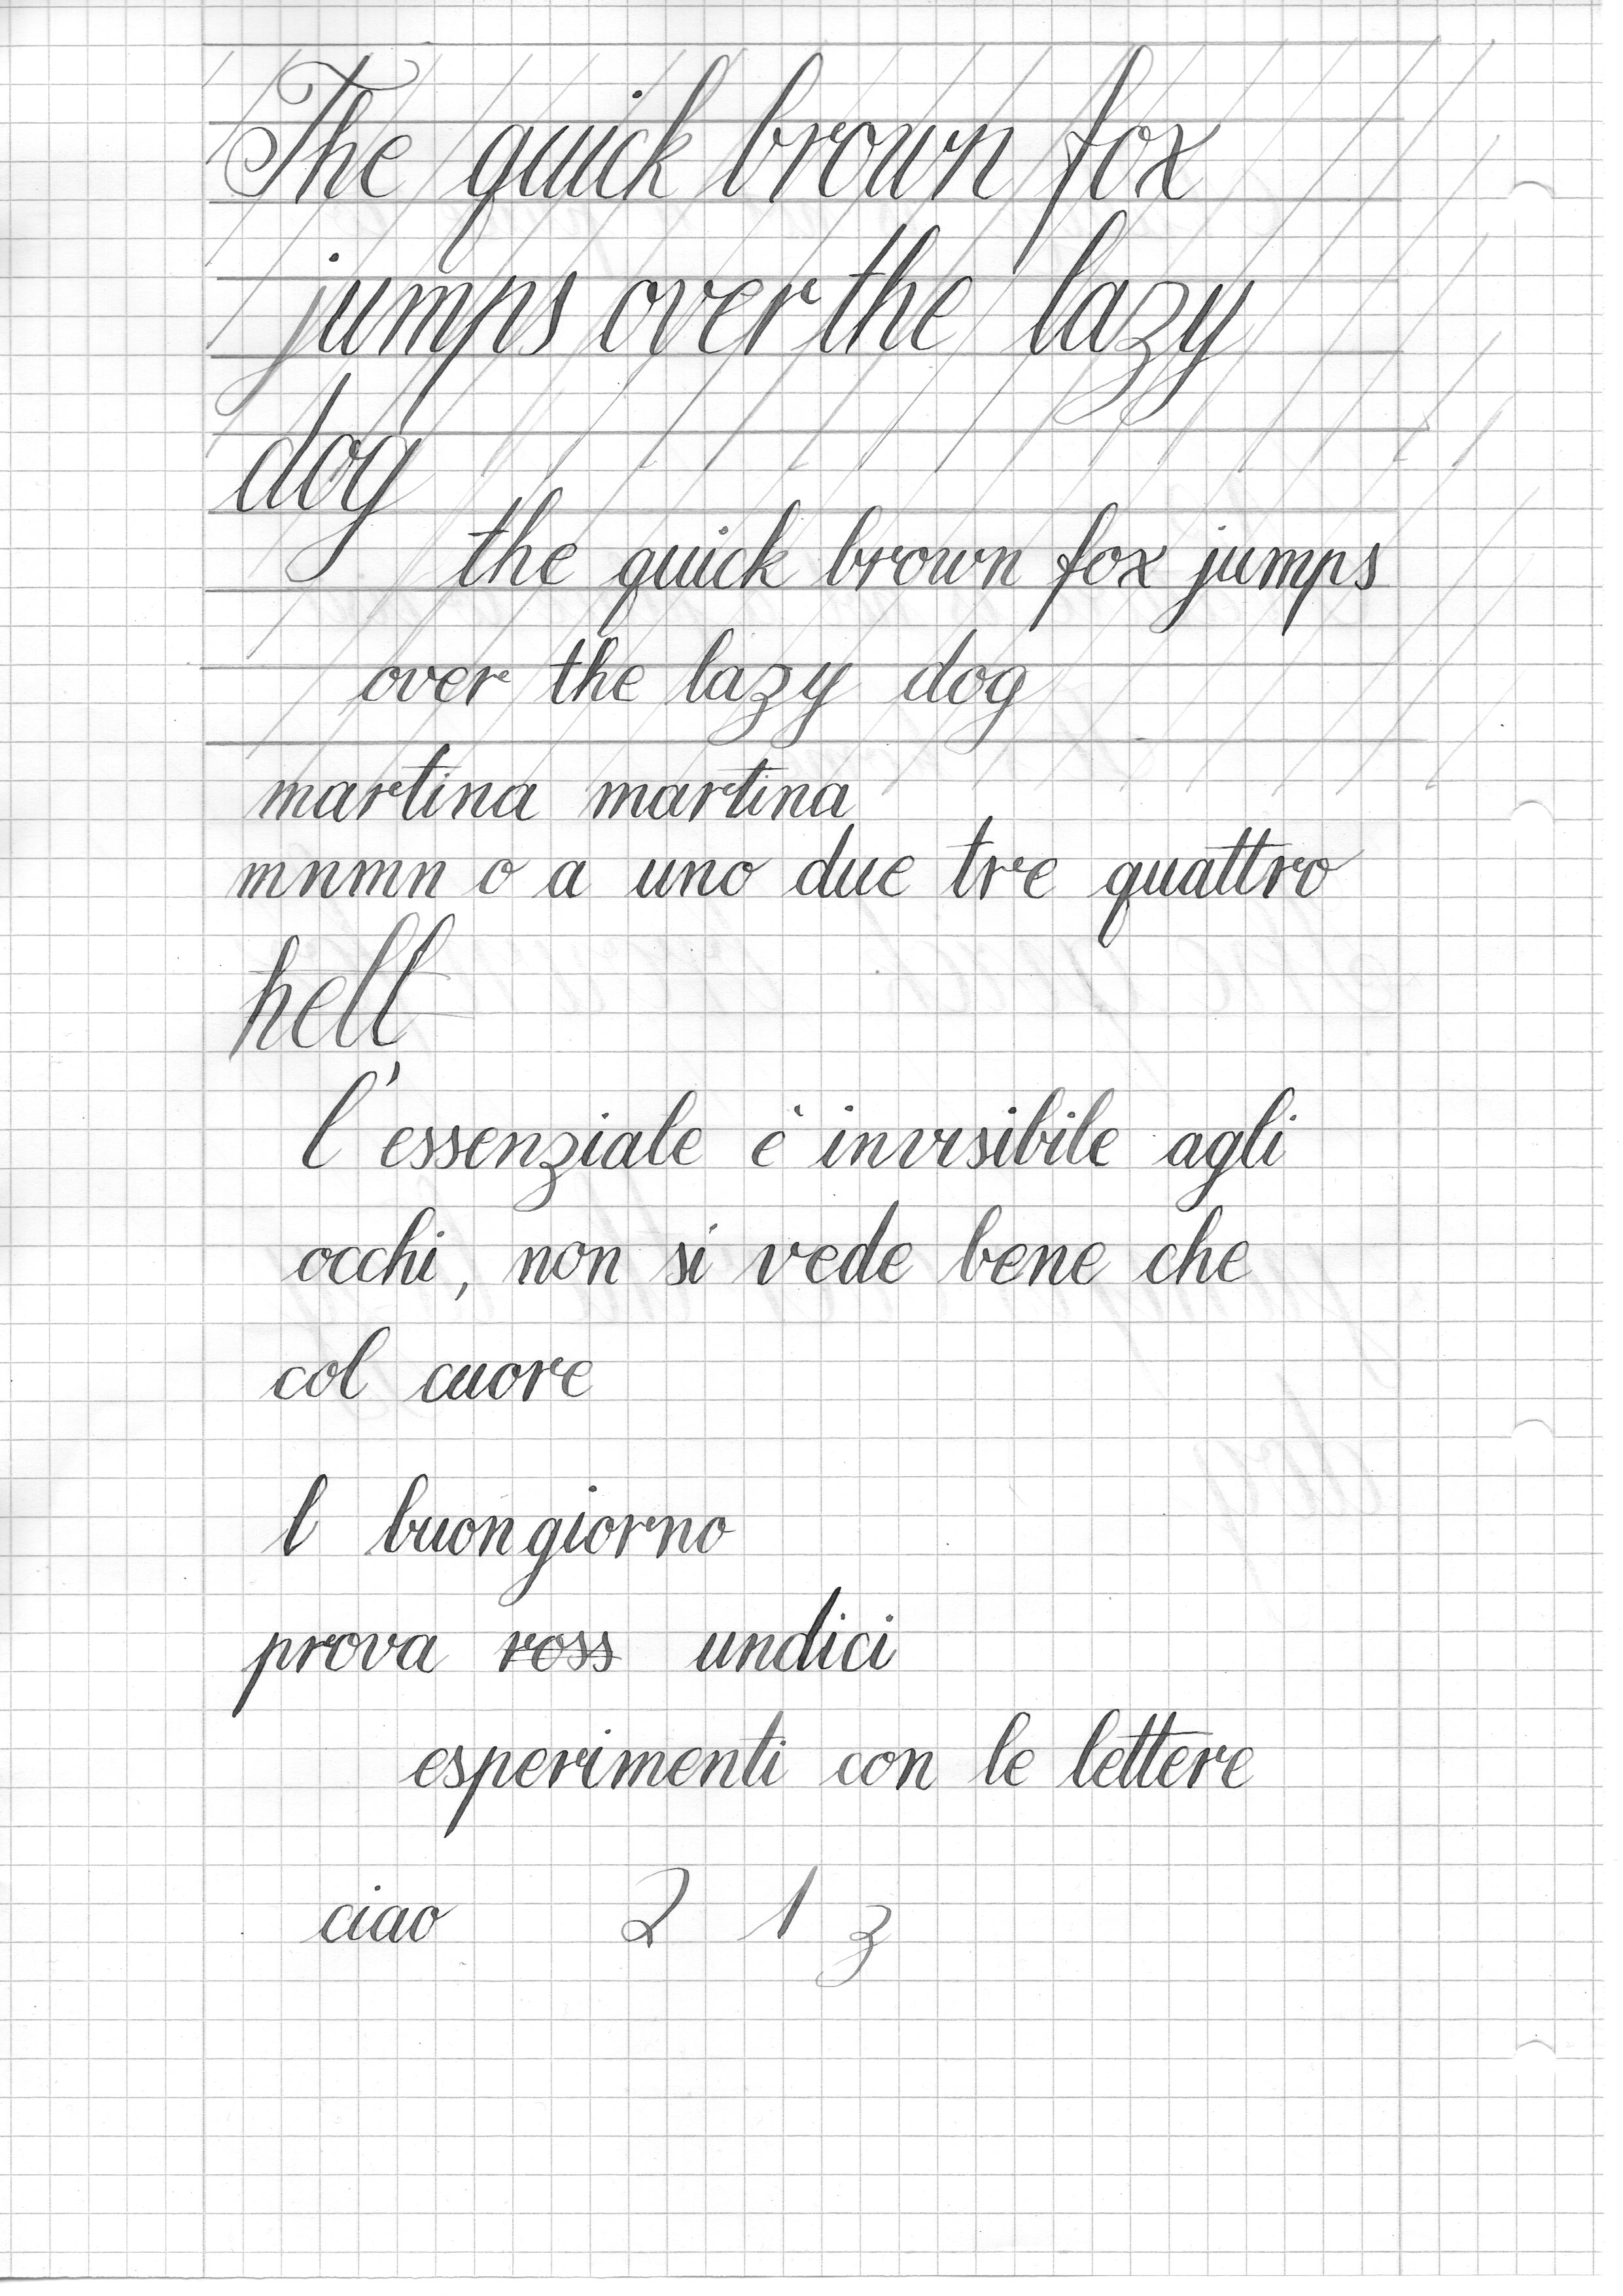 The quick brown fox
jumps over the lazy
dog
the quick brown fox jumps
over the lazy dog
martina martina
mnmn o a uno due tre quattro
hell
l'essenziale è invisibile agli
occhi, non si vede bene che
col cuore
l buongiorno
prova ross undici
esperimenti con le lettere
ciao 2 1 z